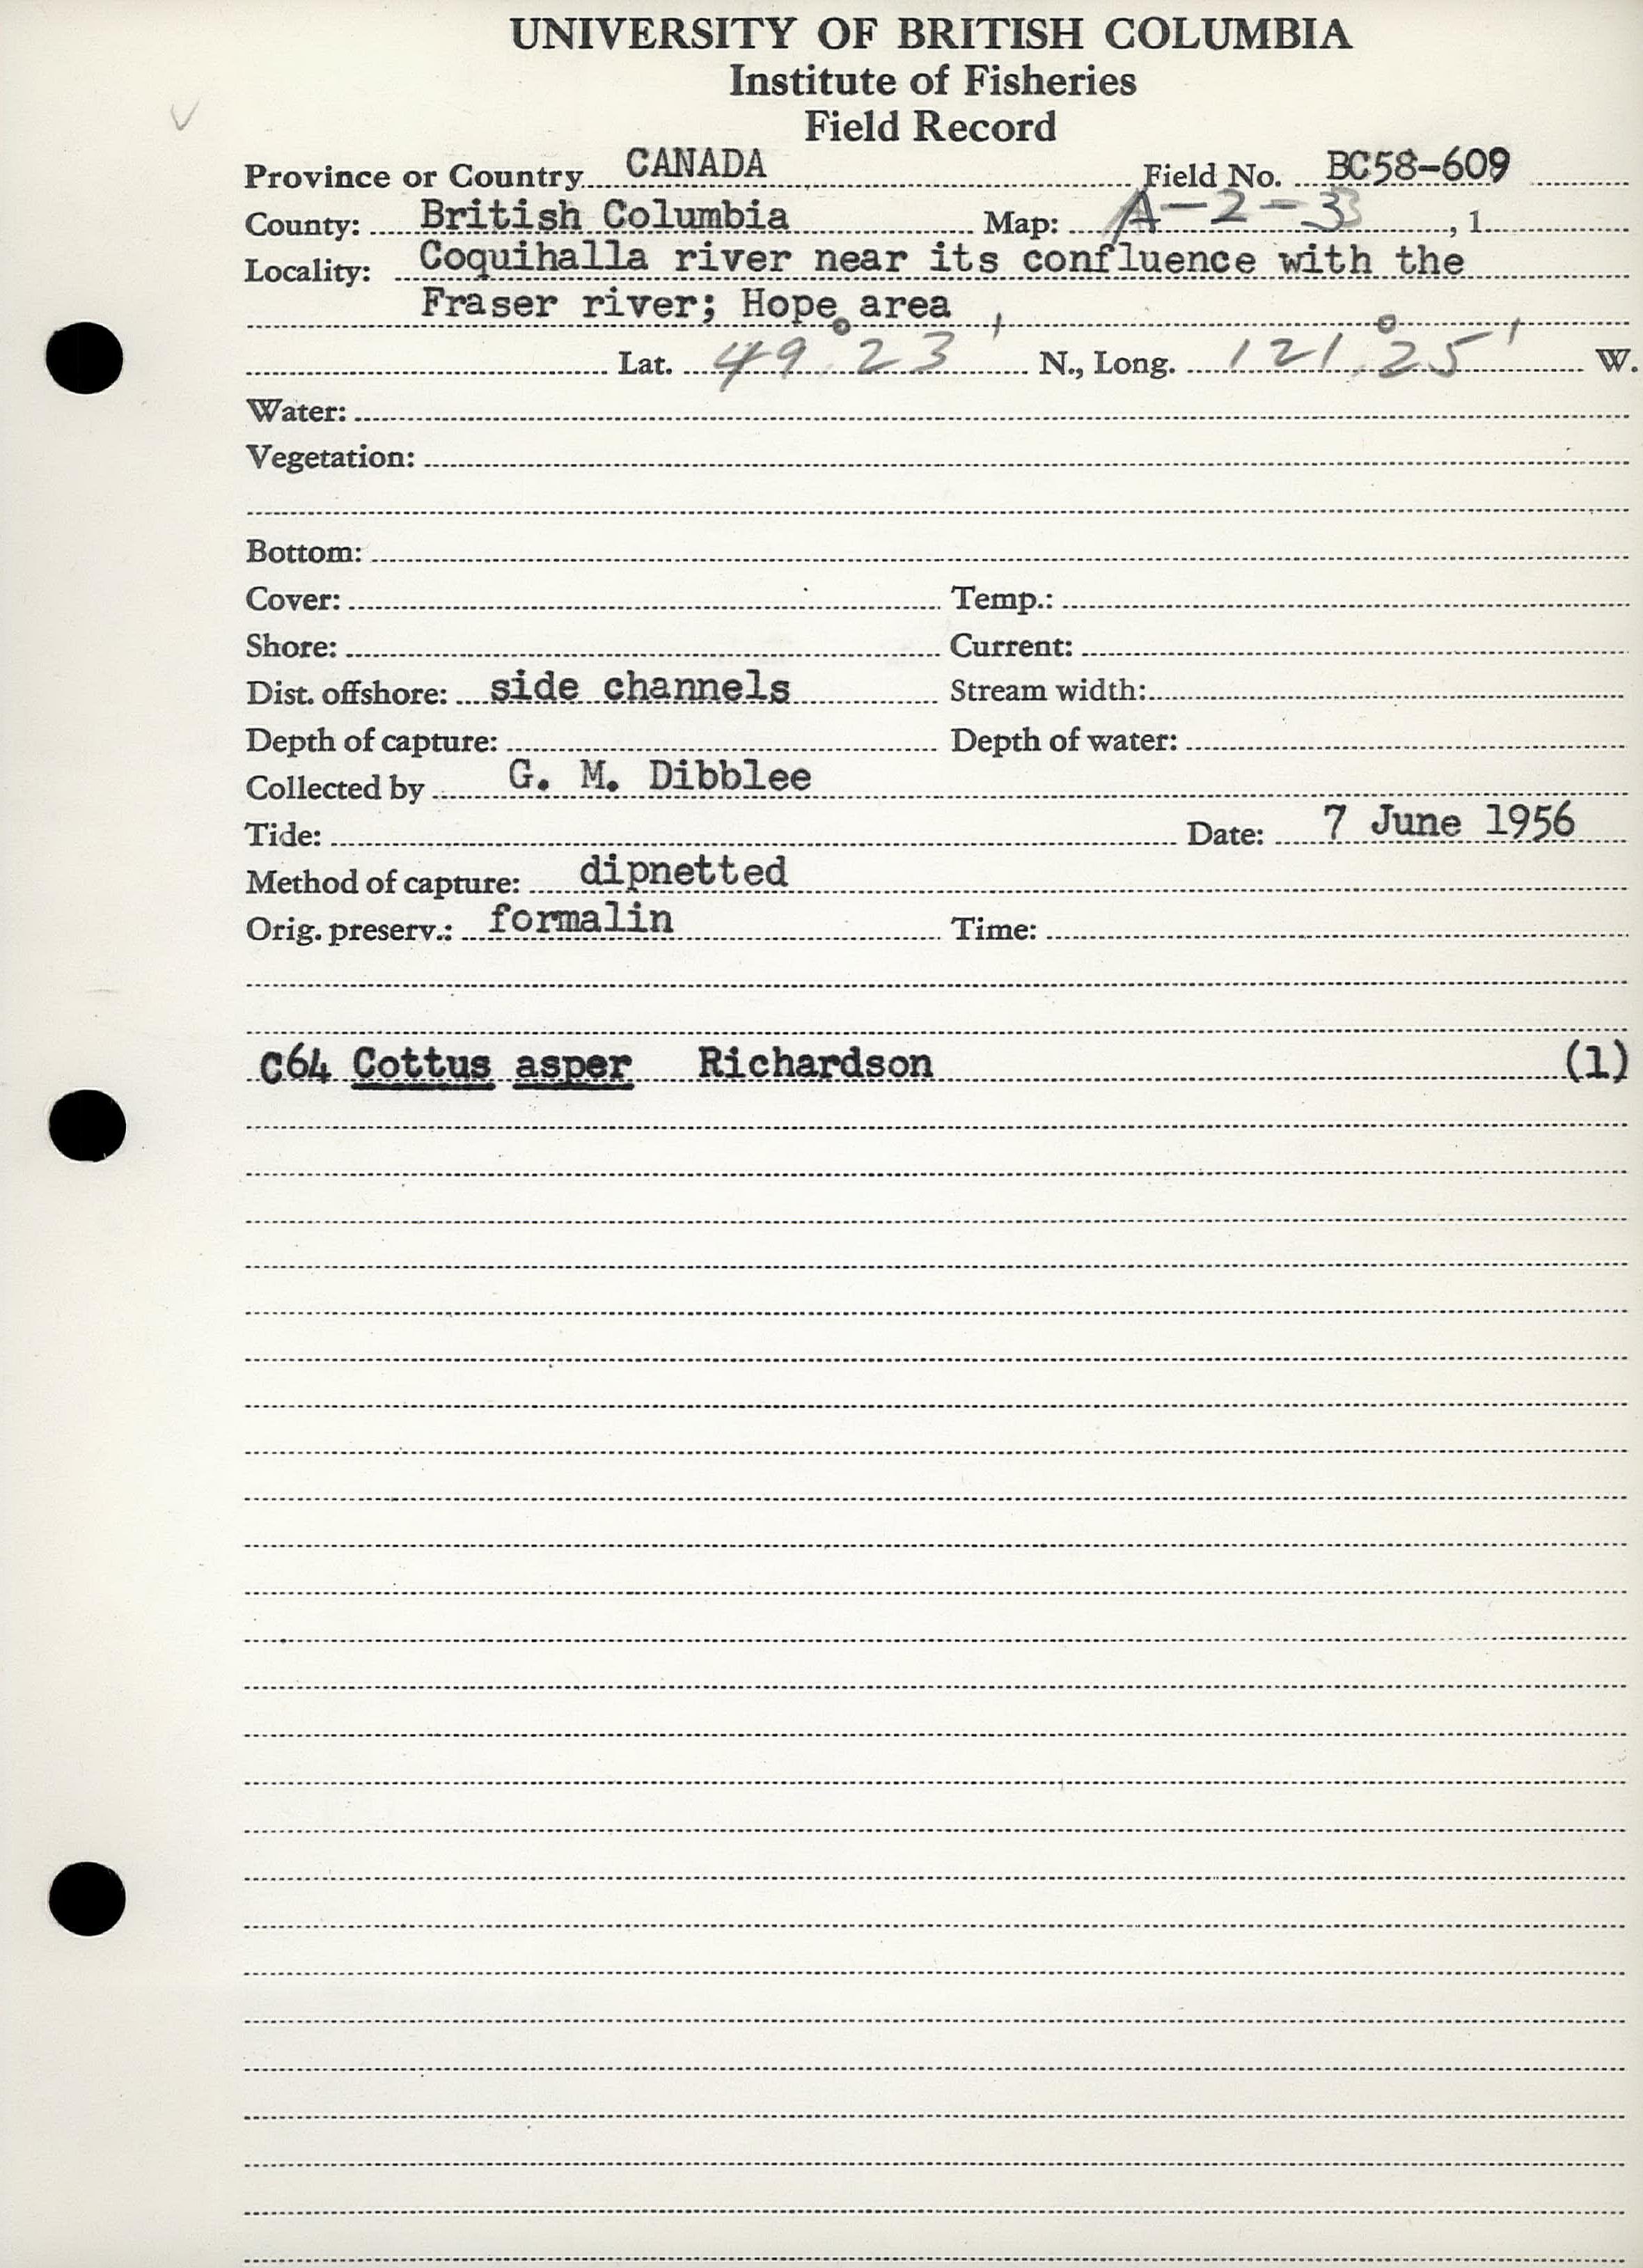 UNIVERSITY OF BRITISH COLUMBIA
Institute of Fisheries
Field Record
Province or Country CANADA Field No. BC58-609
County: British Columbia Map: A-2-3 , 1.
Locality: Coquihalla river near its confluence with the
Fraser river; Hope area
Lat. 49° 23' N., Long. 121° 25' W.
Water:
Vegetation:
Bottom:
Cover: Temp.:
Shore: Current:
Dist. offshore: side channels Stream width:
Depth of capture: Depth of water:
Collected by G. M. Dibblee
Tide: Date: 7 June 1956
Method of capture: dipnetted
Orig. preserv.: formalin Time:
C64 Cottus asper Richardson (1)